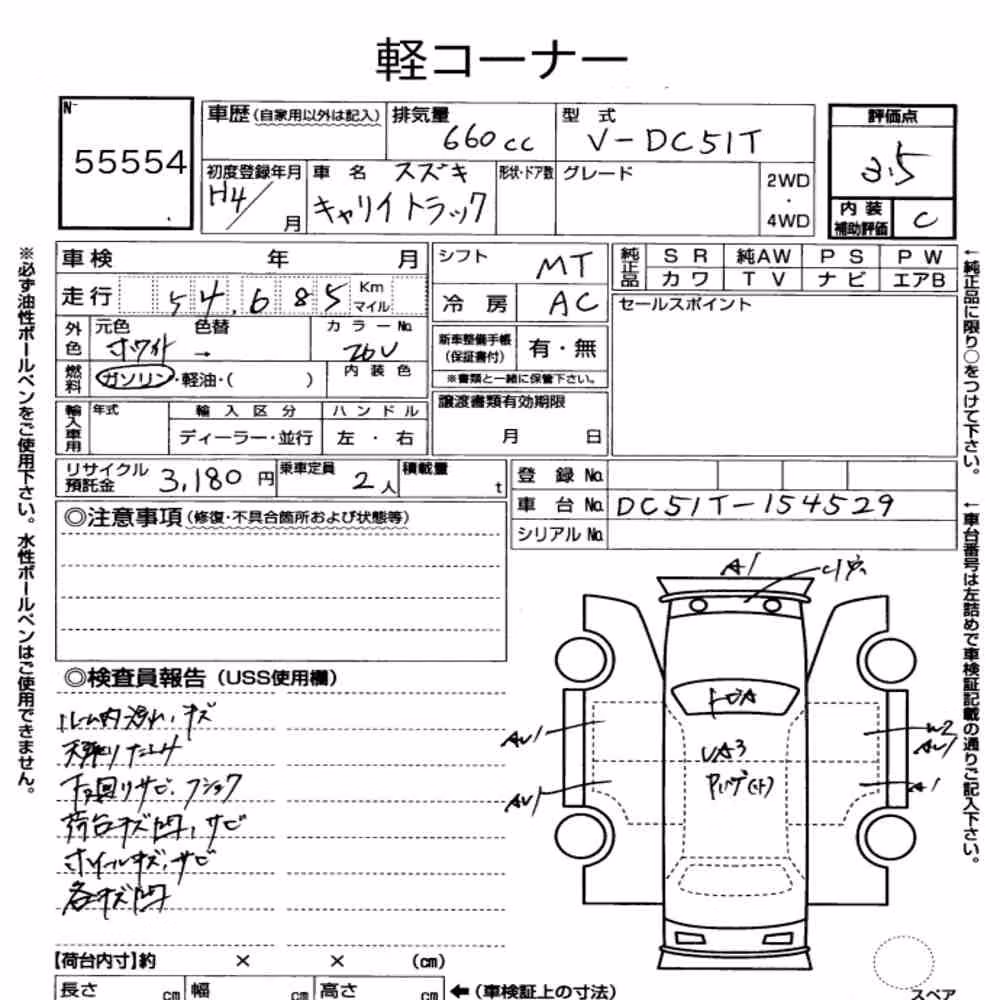 軽コーナー
N-
55554
車歴 (自家用以外は記入)
排気量
660cc
型 式
V-DC51T
評価点
3.5
初度登録年月
H4/
月
車 名
スズキ
キャリイトラック
形状・ドア数
グレード
2WD
・
4WD
内 装
補助評価
C
車 検 年 月
シフト
MT
純正品
S R
純AW
P S
P W
カ ワ
T V
ナ ビ
エアB
走 行
54,685
Km
マイル
冷 房
AC
セールスポイント
外色
元色
ホワイト
色替
→
カ ラ ー No.
26U
新車整備手帳
(保証書付)
有・無
※書類と一緒に保管下さい。
燃料
ガソリン・軽油・( )
内 装 色
輸入車用
年式
輸 入 区 分
ハ ン ド ル
ディーラー・並行
左 ・ 右
譲渡書類有効期限
月 日
リサイクル
預託金
3,180 円
乗車定員
2人
積載量
t
登 録 No.
車 台 No.
DC51T-154529
シリアル No.
◎注意事項 (修復・不具合箇所および状態等)
◎検査員報告 (USS使用欄)
ルーム内汚れ、キズ
天張りたるみ
下廻りサビ、フショク
荷台キズ凹、サビ
ホイールキズ、サビ
各キズ凹
A1
AU1
AU1
UA3
W2
AU1
A1
【荷台内寸】約 × × (cm)
長さ cm
幅 cm
高さ cm
←(車検証上の寸法)
スペア
※必ず油性ボールペンをご使用下さい。水性ボールペンはご使用できません。
←純正品に限り○をつけて下さい。
←車台番号は左詰めで車検証記載の通りご記入下さい。